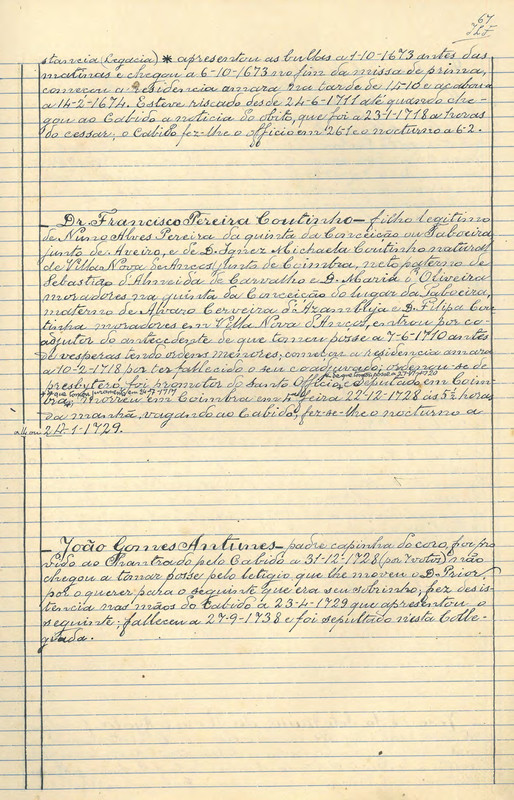 67
stancia (Legacia) * apresentou as bullas a 1-10-1673 antes das
matinas e chegou a 6-10-1673 no fim da missa de prima,
começou a residencia amara na tarde de 15-10 e acabou a
a 14-2-1674. Esteve riscado desde 24-6-1711 até quando che-
gou ao Cabido a noticia do obito, que foi a 23-1-1718 a horas
do cessar; o Cabido fez-lhe o officio em 26-1 e o nocturno a 6-2.
— Dr. Francisco Pereira Coutinho — filho legitimo
de Nuno Alves Pereira da quinta da Conceição ou Taboeira
junto de Aveiro, e de D. Ignez Michaela Coutinho natural
de Villa Nova de Anços junto de Coimbra, neto paterno de
Sebastião d'Almeida de Carvalho e D. Maria d'Oliveira
moradores na quinta da Conceição do lugar da Taboeira,
materno de Alvaro Cerveira d'Azambuja e D. Filipa Cou-
tinha moradores em Villa Nova d'Anços, entrou por co-
adjutor do antecedente de que tomou posse a 7-6-1710 antes
de vesperas tendo ordens menores, começou a residencia amara
a 10-2-1718 por ter fallecido o seu coadjuvado; ordenou-se de
presbytero, foi promotor do Santo Officio e deputado em Coim-
bra. Morreu em Coimbra em 4ª feira 22-12-1728 ás 5½ horas
da manhã, vagando ao Cabido; fez-se-lhe o nocturno a
24-1-1729.
— João Gomes Antunes — padre capinha do coro, foi pro-
vido ao Chantrado pelo Cabido a 31-12-1728 (por 7 votos) não
chegou a tomar posse pelo letigio que lhe moveu o D. Prior,
por o querer para o seguinte que era seu sobrinho; fez desis-
tencia nas mãos do Cabido a 23-4-1729 que apresentou o
seguinte: falleceu a 27-9-1738 e foi sepultado nesta Colle-
giada.